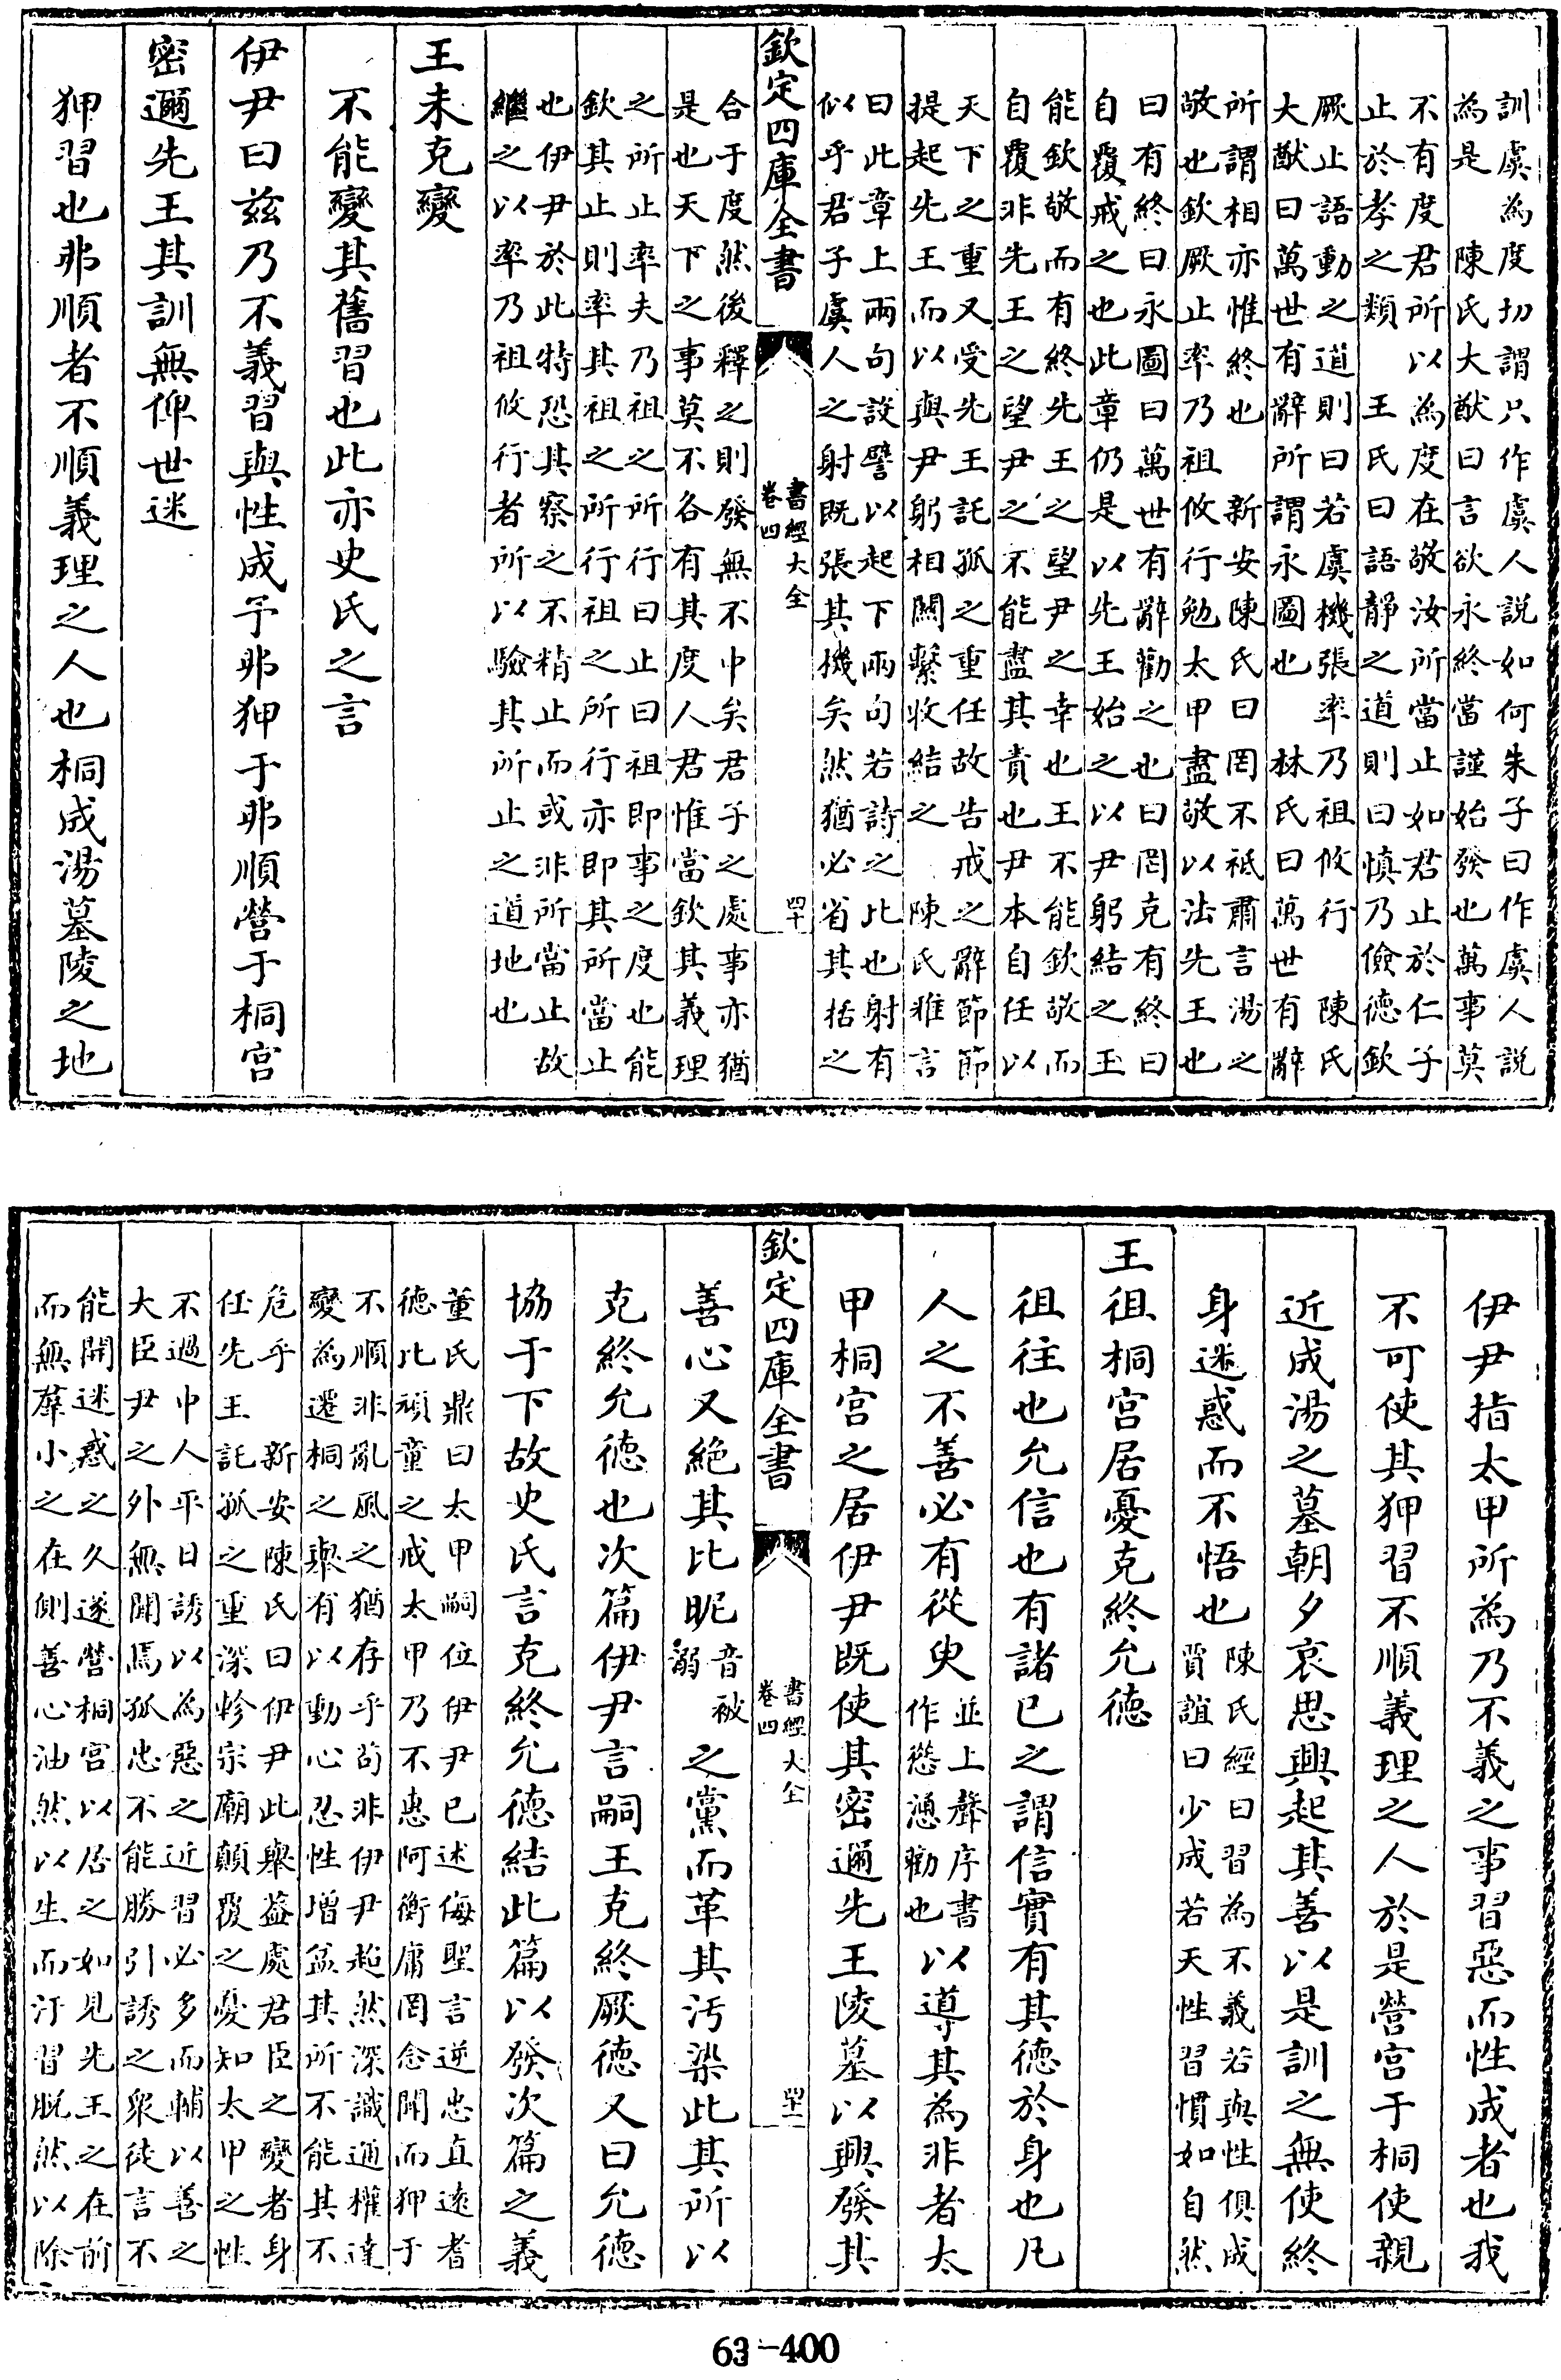 訓虞為度切謂只作虞人説如何朱子曰作虞人説
為是　陳氏大猷曰言欲永終當謹始發也萬事莫
不有度君所以為度在敬汝所當止如君止於仁子
止於孝之類　王氏曰語靜之道則曰慎乃儉德欽
厥止語動之道則曰若虞機張率乃祖攸行　陳氏
大猷曰萬世有辭所謂永圖也　林氏曰萬世有辭
所謂相亦惟終也　新安陳氏曰罔不祗肅言湯之
敬也欽厥止率乃祖攸行勉太甲盡敬以法先王也
曰有終曰永圖曰萬世有辭勸之也曰罔克有終曰
自覆戒之也此章仍是以先王始之以尹躬結之王
能欽敬而有終先王之望尹之幸也王不能欽敬而
自覆非先王之望尹之不能盡其責也尹本自任以
天下之重又受先王託孤之重任故告戒之辭節節
提起先王而以與尹躬相關繫收結之　陳氏雅言
曰此章上兩句設譬以起下兩句若詩之比也射有
似乎君子虞人之射既張其機矣然猶必省其括之
欽定四庫全書
書經大全
卷四
四十
合于度然後釋之則發無不中矣君子之處事亦猶
是也天下之事莫不各有其度人君惟當欽其義理
之所止率夫乃祖之所行曰止曰祖即事之度也能
欽其止則率其祖之所行祖之所行亦即其所當止
也伊尹於此特恐其察之不精止而或非所當止故
繼之以率乃祖攸行者所以驗其所止之道地也
王未克變
不能變其舊習也此亦史氏之言
伊尹曰兹乃不義習與性成予弗狎于弗順營于桐宮
密邇先王其訓無俾世迷
狎習也弗順者不順義理之人也桐成湯墓陵之地
伊尹指太甲所為乃不義之事習惡而性成者也我
不可使其狎習不順義理之人於是營宮于桐使親
近成湯之墓朝夕哀思興起其善以是訓之無使終
身迷惑而不悟也陳氏經曰習為不義若與性俱成
賈誼曰少成若天性習慣如自然
王徂桐宮居憂克終允德
徂往也允信也有諸己之謂信實有其德於身也凡
人之不善必有從臾並上聲序書
作慫慂勸也以導其為非者太
甲桐宮之居伊尹既使其密邇先王陵墓以興發其
欽定四庫全書
書經大全
卷四
四十一
善心又絶其比昵音被
溺之黨而革其汚染此其所以
克終允德也次篇伊尹言嗣王克終厥德又曰允德
協于下故史氏言克終允德結此篇以發次篇之義
董氏鼎曰太甲嗣位伊尹已述侮聖言逆忠直遠耆
德比頑童之戒太甲乃不惠阿衡庸罔念聞而狎于
不順非亂風之猶存乎茍非伊尹超然深識通權達
變為遷桐之舉有以動心忍性增益其所不能其不
危乎　新安陳氏曰伊尹此舉蓋處君臣之變者身
任先王託孤之重深軫宗廟顛覆之憂知太甲之性
不過中人平日誘以為惡之近習必多而輔以善之
大臣尹之外無聞焉孤忠不能勝引誘之衆徒言不
能開迷惑之久遂營桐宮以居之如見先王之在前
而無羣小之在側善心油然以生而汙習脱然以除
63-400